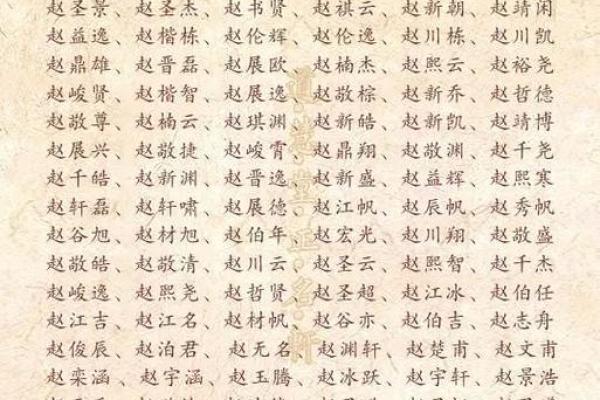 赵圣景、赵圣杰、赵书贤、赵祺云、赵新朝、赵靖闲
赵益逸、赵楷栋、赵伦辉、赵伦逸、赵川栋、赵川凯
赵鼎雄、赵晋磊、赵展欧、赵楠杰、赵熙云、赵裕尧
赵峻贤、赵楷智、赵展逸、赵敬棕、赵新乔、赵哲德
赵敬尊、赵楠云、赵琪渊、赵新皓、赵新凯、赵靖博
赵展兴、赵敬捷、赵峻霄、赵鼎翔、赵敬渊、赵千尧
赵千皓、赵新渊、赵晋逸、赵新盛、赵益辉、赵熙寒
赵轩磊、赵轩啸、赵展德、赵江帆、赵辰帆、赵秀帆
赵谷旭、赵材旭、赵伯年、赵宏光、赵川翔、赵敬盛
赵敬皓、赵敬清、赵川云、赵圣云、赵熙智、赵千杰
赵峻逸、赵熙尧、赵哲贤、赵圣超、赵江冰、赵伯任
赵江吉、赵江名、赵材帆、赵谷亦、赵伯吉、赵志舟
赵俊辰、赵泊君、赵无名、赵渊轩、赵楚甫、赵文甫
赵栾涵、赵宇涵、赵玉腾、赵冰跃、赵宇轩、赵景浩